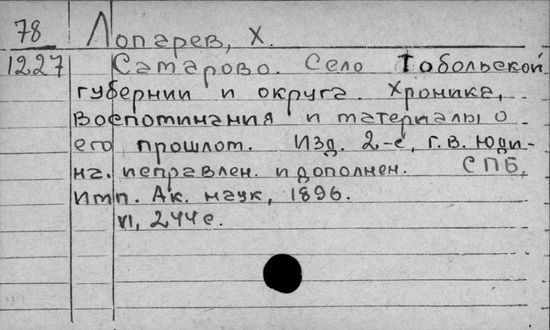 78 Лопарев, Х.
1227 Самарово. Село Тобольской
губернии и округа. Хроника,
воспоминания и материалы о
его прошлом. Изд. 2-е, г. В. Юди-
на. исправлен. и дополнен. СПБ,
Имп. Ак. наук, 1896.
VI, 244 с.